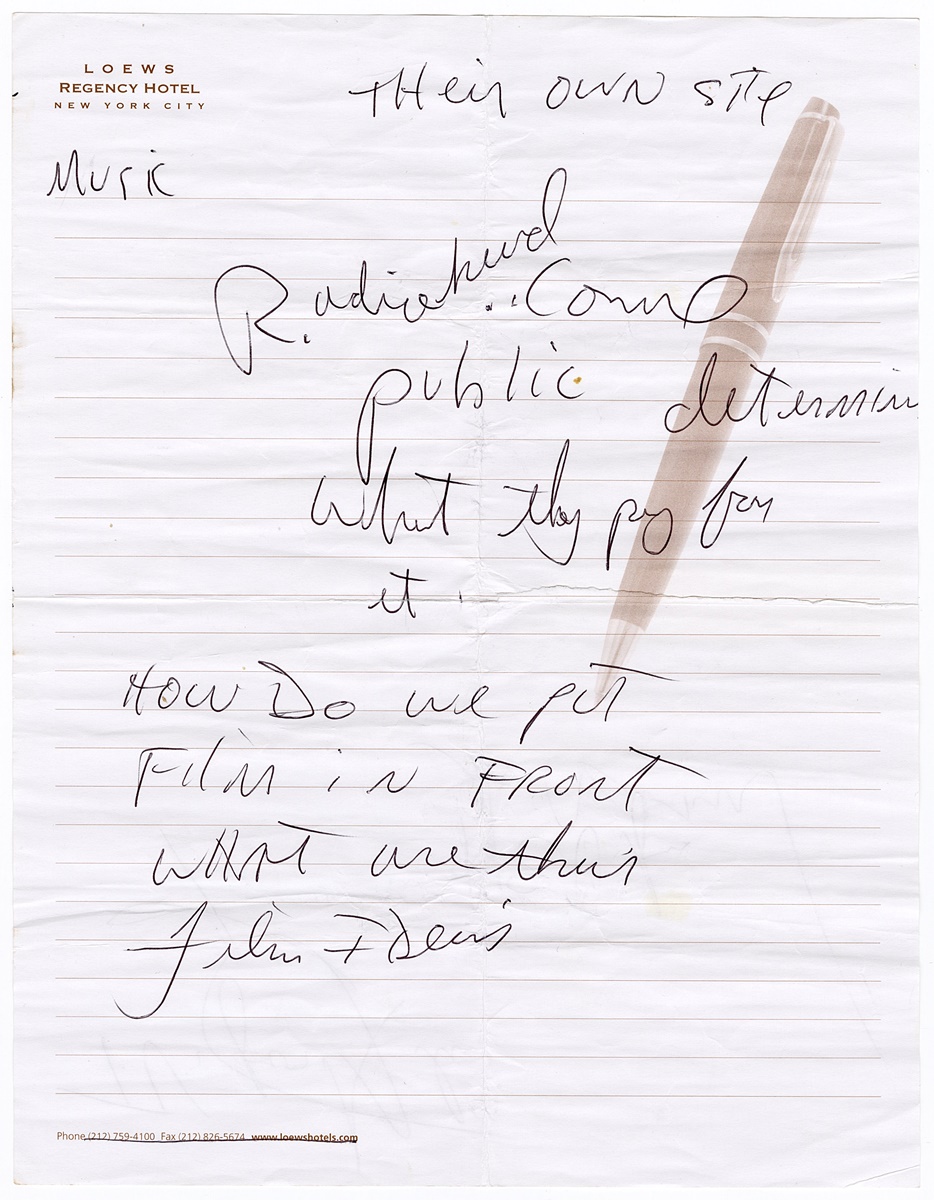 LOEWS
REGENCY HOTEL
NEW YORK CITY
THeir OWN SITe
Music
Radiohead..Com
public determin
what they pay for
it.
HOW Do we get
FILM in FRONT
WHAT are their
film IDeas
Phone (212) 759-4100 Fax (212) 826-5674 www.loewshotels.com